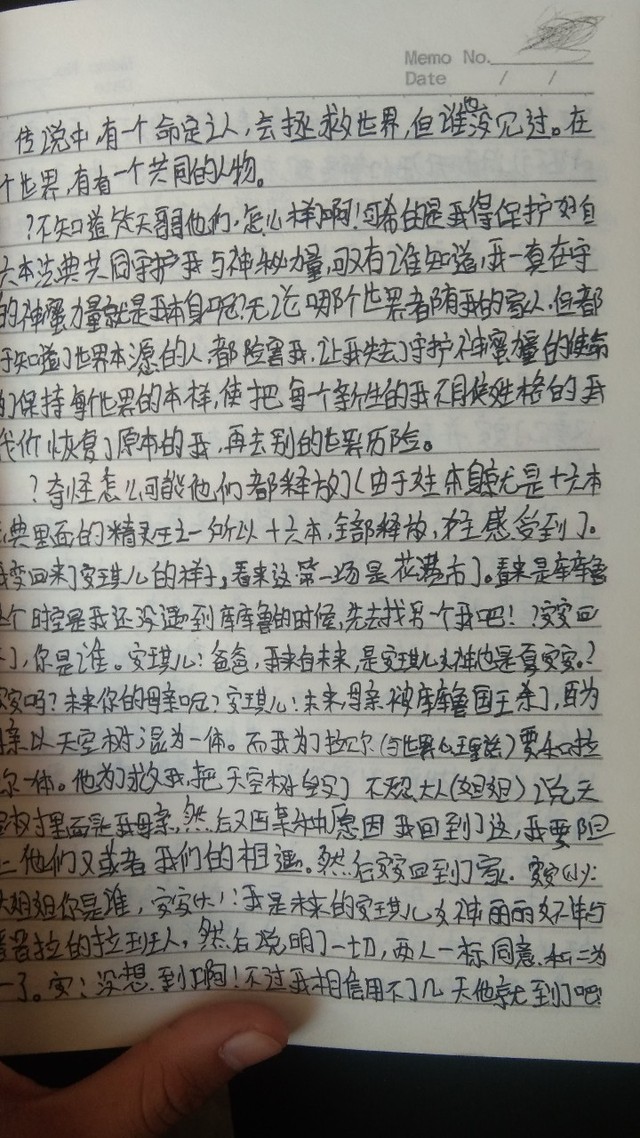 Memo No.
Date / /
传说中,有一个命定之人,会拯救世界,但谁也没见过。在
个世界,有着一个共同的人物。
?不知道笑天哥哥他们,怎么样了啊!可希的是我得保护好自
六本法典共同守护我与神秘力量,可又有谁知道,我一直在守
的神秘力量就是我本身呢?无论哪个世界者陏有我的家人,但都
于知道了世界本源的人都险害我,让我失去了守护神秘力量的使命
们保持每个世界的本样,使把每个新生的我不同使性格的我
代价恢复了原本的我,再去别的世界历险。
?奇怪怎么可能他们都释放了(由于女主本身就是十六本
典里面的精灵王之一所以十六本,全部释放,女主感受到了。
变回来了安琪儿的样子,看来这第一场是花满市了。看来是库库鲁
个时空是我还没遇到库库鲁的时候,先去找另一个我吧!?安安回
了,你是谁。安琪儿:爸爸,我来自未来,是安琪儿女神也是夏安安。?
安安吗?未来你的母亲呢?安琪儿:未来,母亲被库库鲁国王杀了,因为
亲以天空树混为一体。而我为了拉尔(与世界心里话)要和拉
尔一体。他为了救我,把天空树毁了 不忍,大人(姐姐)说天
空树里面是我母亲,然后又因某种原因我回到了这,我要阻
止他们又或者我们的相遇。然后安安回到了家. 安安(小):
大姐姐你是谁,安安(大):我是未来的安琪儿女神丽丽女神与
普拉的拉班人,然后说明了一切,两人一标同意.和二为
一了。安:没想到啊!不过我相信用不了几天他就到了吧!